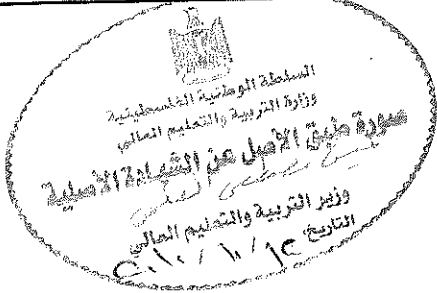 السلطة الوطنية الفلسطينية
وزارة التربية والتعليم العالي
صورة طبق الأصل عن الشهادة الأصلية
وزير التربية والتعليم العالي
التاريخ: